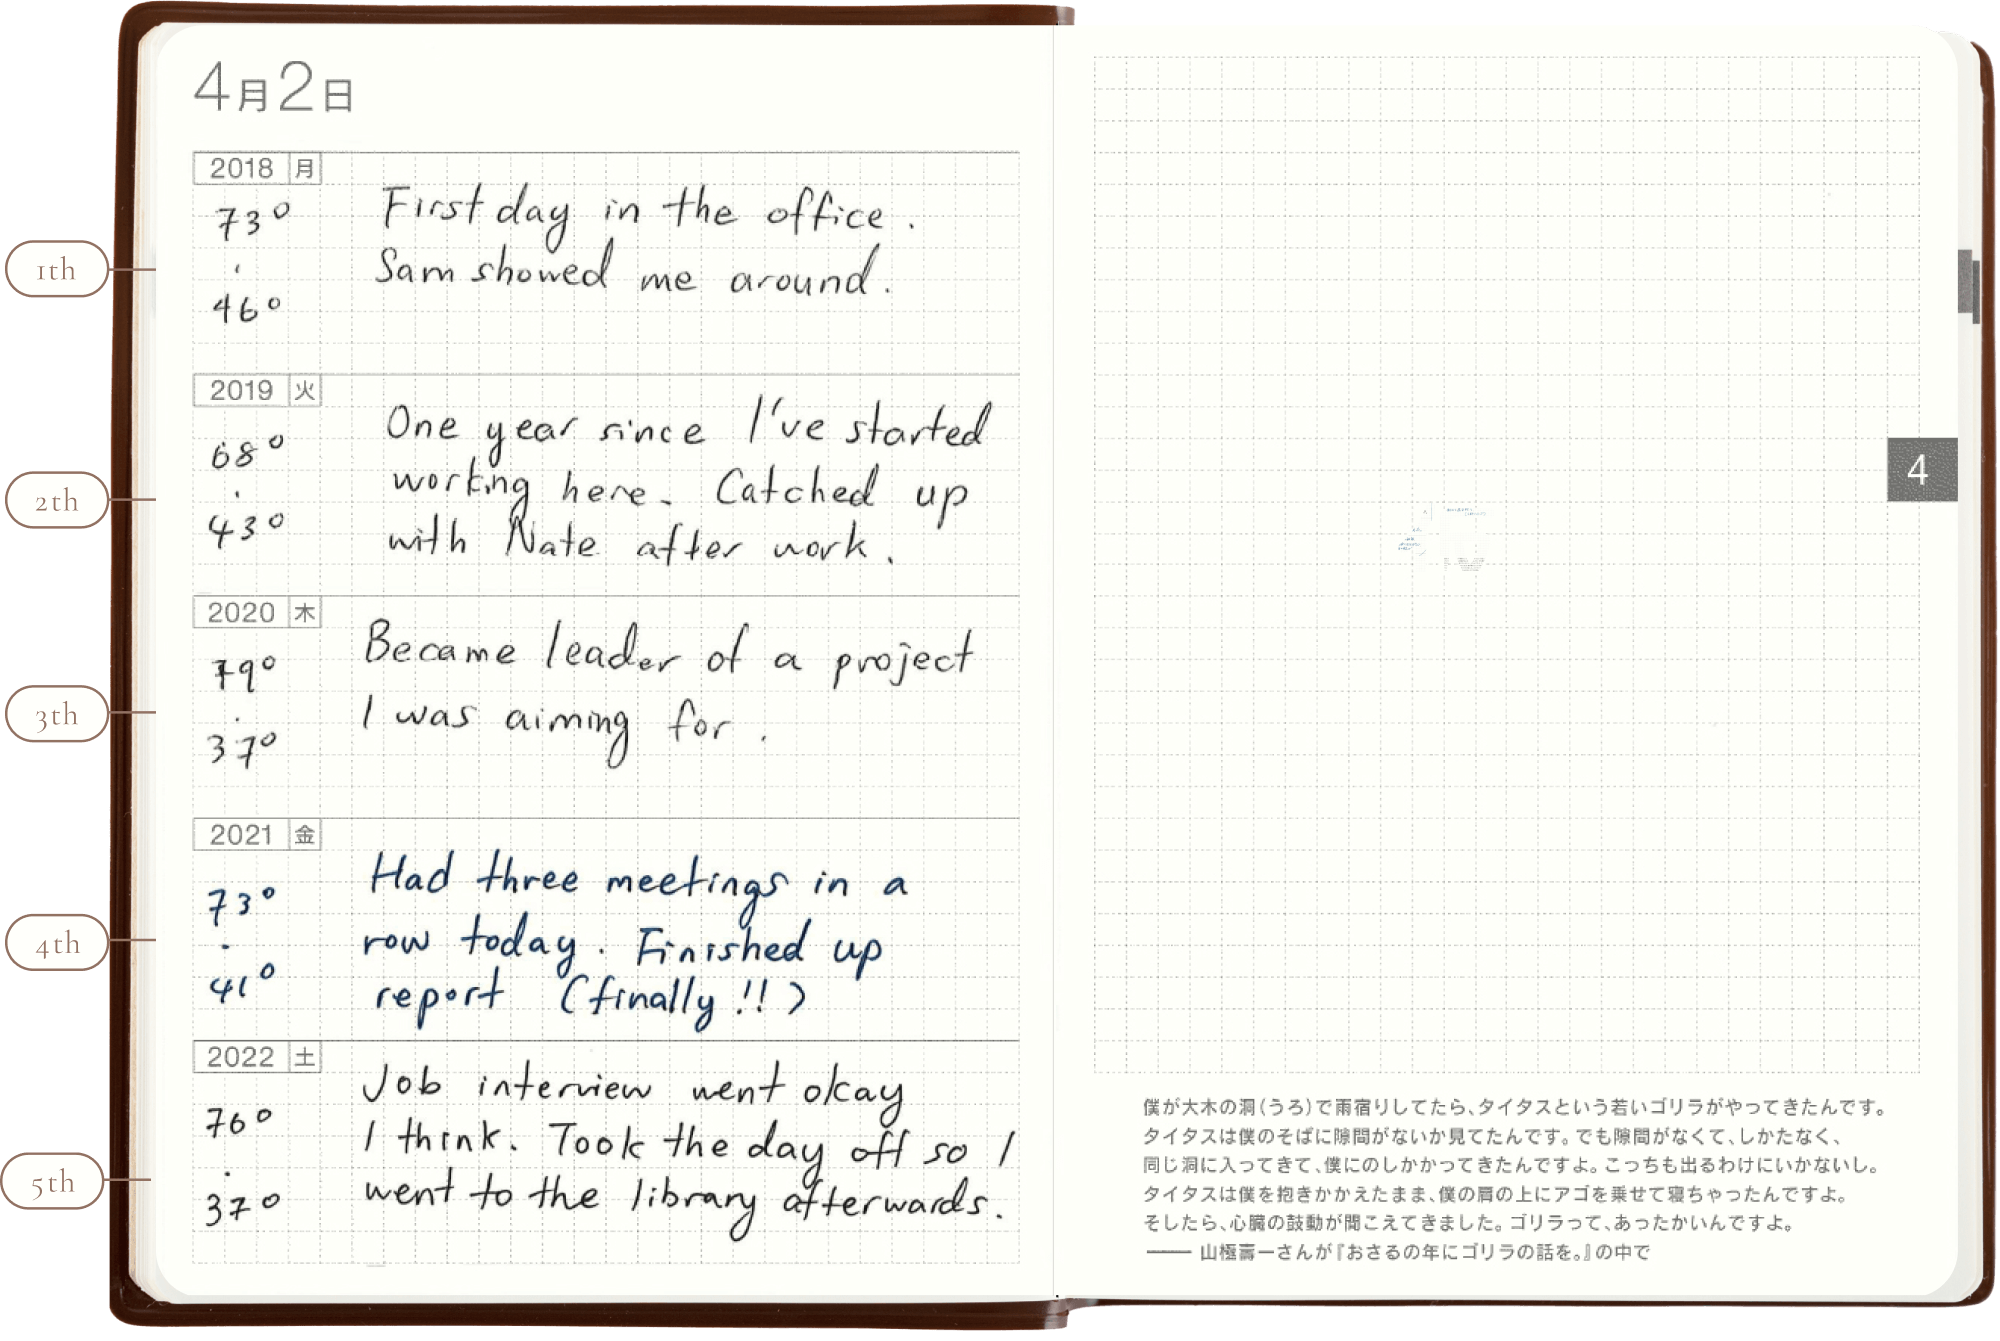 4月2日
2018 月
73°
.
46°
First day in the office.
Sam showed me around.
1th
2019 火
68°
.
43°
One year since I've started
working here. Catched up
with Nate after work.
2th
2020 木
79°
.
37°
Became leader of a project
I was aiming for.
3th
2021 金
73°
.
41°
Had three meetings in a
row today. Finished up
report (finally!!)
4th
2022 土
76°
.
37°
Job interview went okay
I think. Took the day off so I
went to the library afterwards.
5th
4
僕が大木の洞(うろ)で雨宿りしてたら、タイタスという若いゴリラがやってきたんです。
タイタスは僕のそばに隙間がないか見てたんです。でも隙間がなくて、しかたなく、
同じ洞に入ってきて、僕にのしかかってきたんですよ。こっちも出るわけにいかないし。
タイタスは僕を抱きかかえたまま、僕の肩の上にアゴを乗せて寝ちゃったんですよ。
そしたら、心臓の鼓動が聞こえてきました。ゴリラって、あったかいんですよ。
—— 山極壽一さんが『おさるの年にゴリラの話を。』の中で